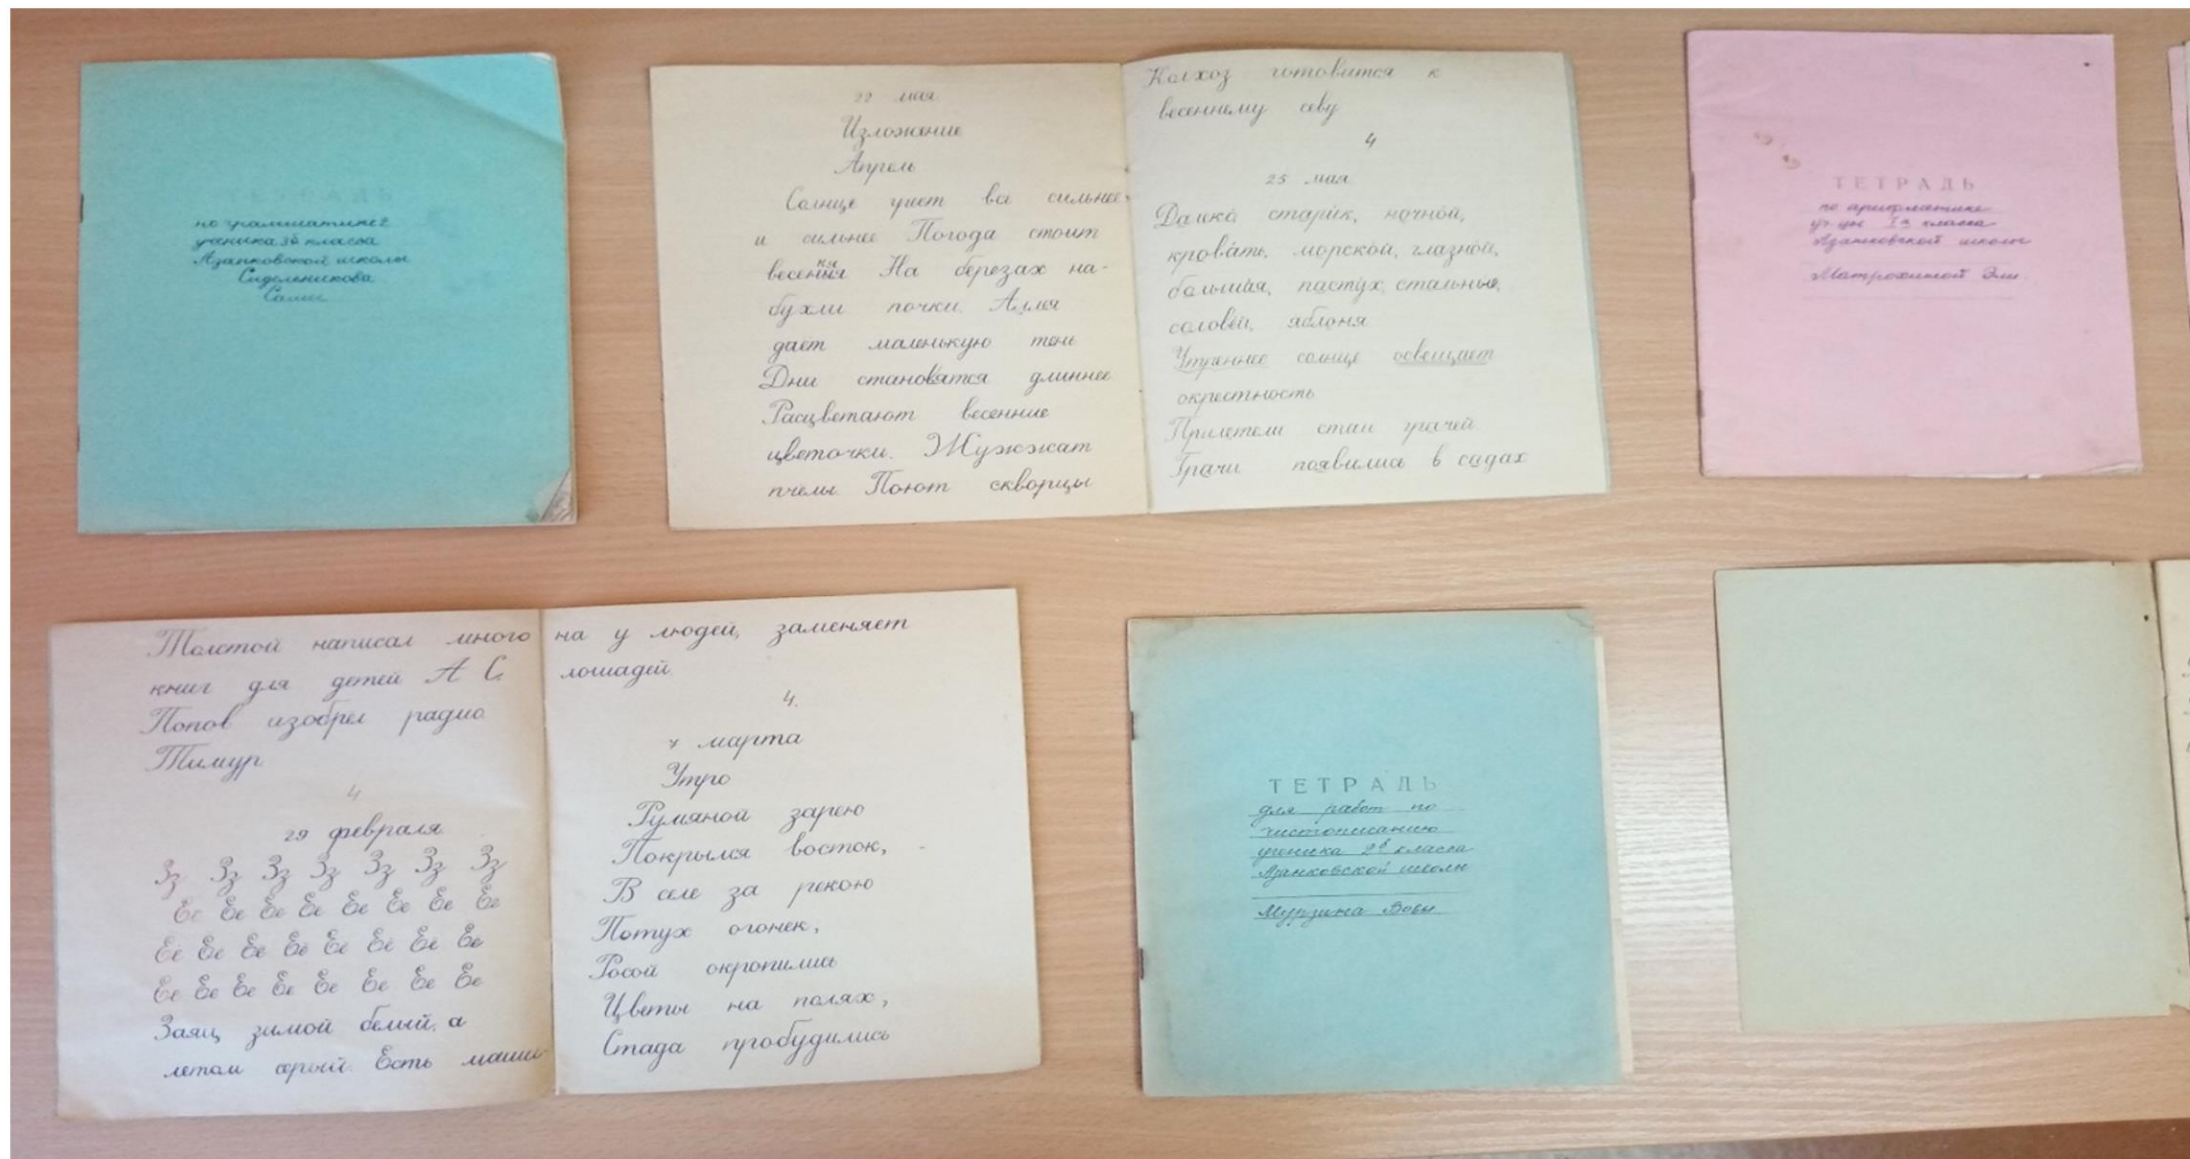 ТЕТРАДЬ
по грамматике
ученика 3б класса
Азанковской школы
Сидоленикова
Саши
22 мая
Изложение
Апрель
Солнце греет все сильнее
и сильнее Погода стоит
весенняя На березах на-
бухли почки. Аллея
дает маленькую тень
Дни становятся длиннее
Расцветают весенние
цветочки. Жужжат
пчелы Поют скворцы
Колхоз готовится к
весеннему севу
4
25 мая
Далеко́ стари́к, ночно́й,
крова́ть, морско́й, глазно́й,
больша́я, пасту́х, стальны́е,
солове́й, яблоня
Утреннее солнце освещает
окрестность
Прилетели стаи грачей
Грачи появились в садах
ТЕТРАДЬ
по арифметике
уч-цы Iа класса
Азанковской школы
Матрохиной Эли
Толстой написал много
книг для детей А С.
Попов изобрел радио
Тимур
4
29 февраля
Зз Зз Зз Зз Зз Зз Зз
Ее Ее Ее Ее Ее Ее Ее Ее
Её Ее Ее Её Её Её Её Ее
Ее Ее Ее Ее Ее Ее Ее Ее
Заяц зимой белый, а
летом серый. Есть маши-
на у людей, заменяет
лошадей
4.
7 марта
Утро
Румяной зарею
Покрылся восток,
В селе за рекою
Потух огонек,
Росой окропились
Цветы на полях,
Стада пробудились
ТЕТРАДЬ
для работ по
чистописанию
ученика 2б класса
Азанковской школы
Мурзина Вовы